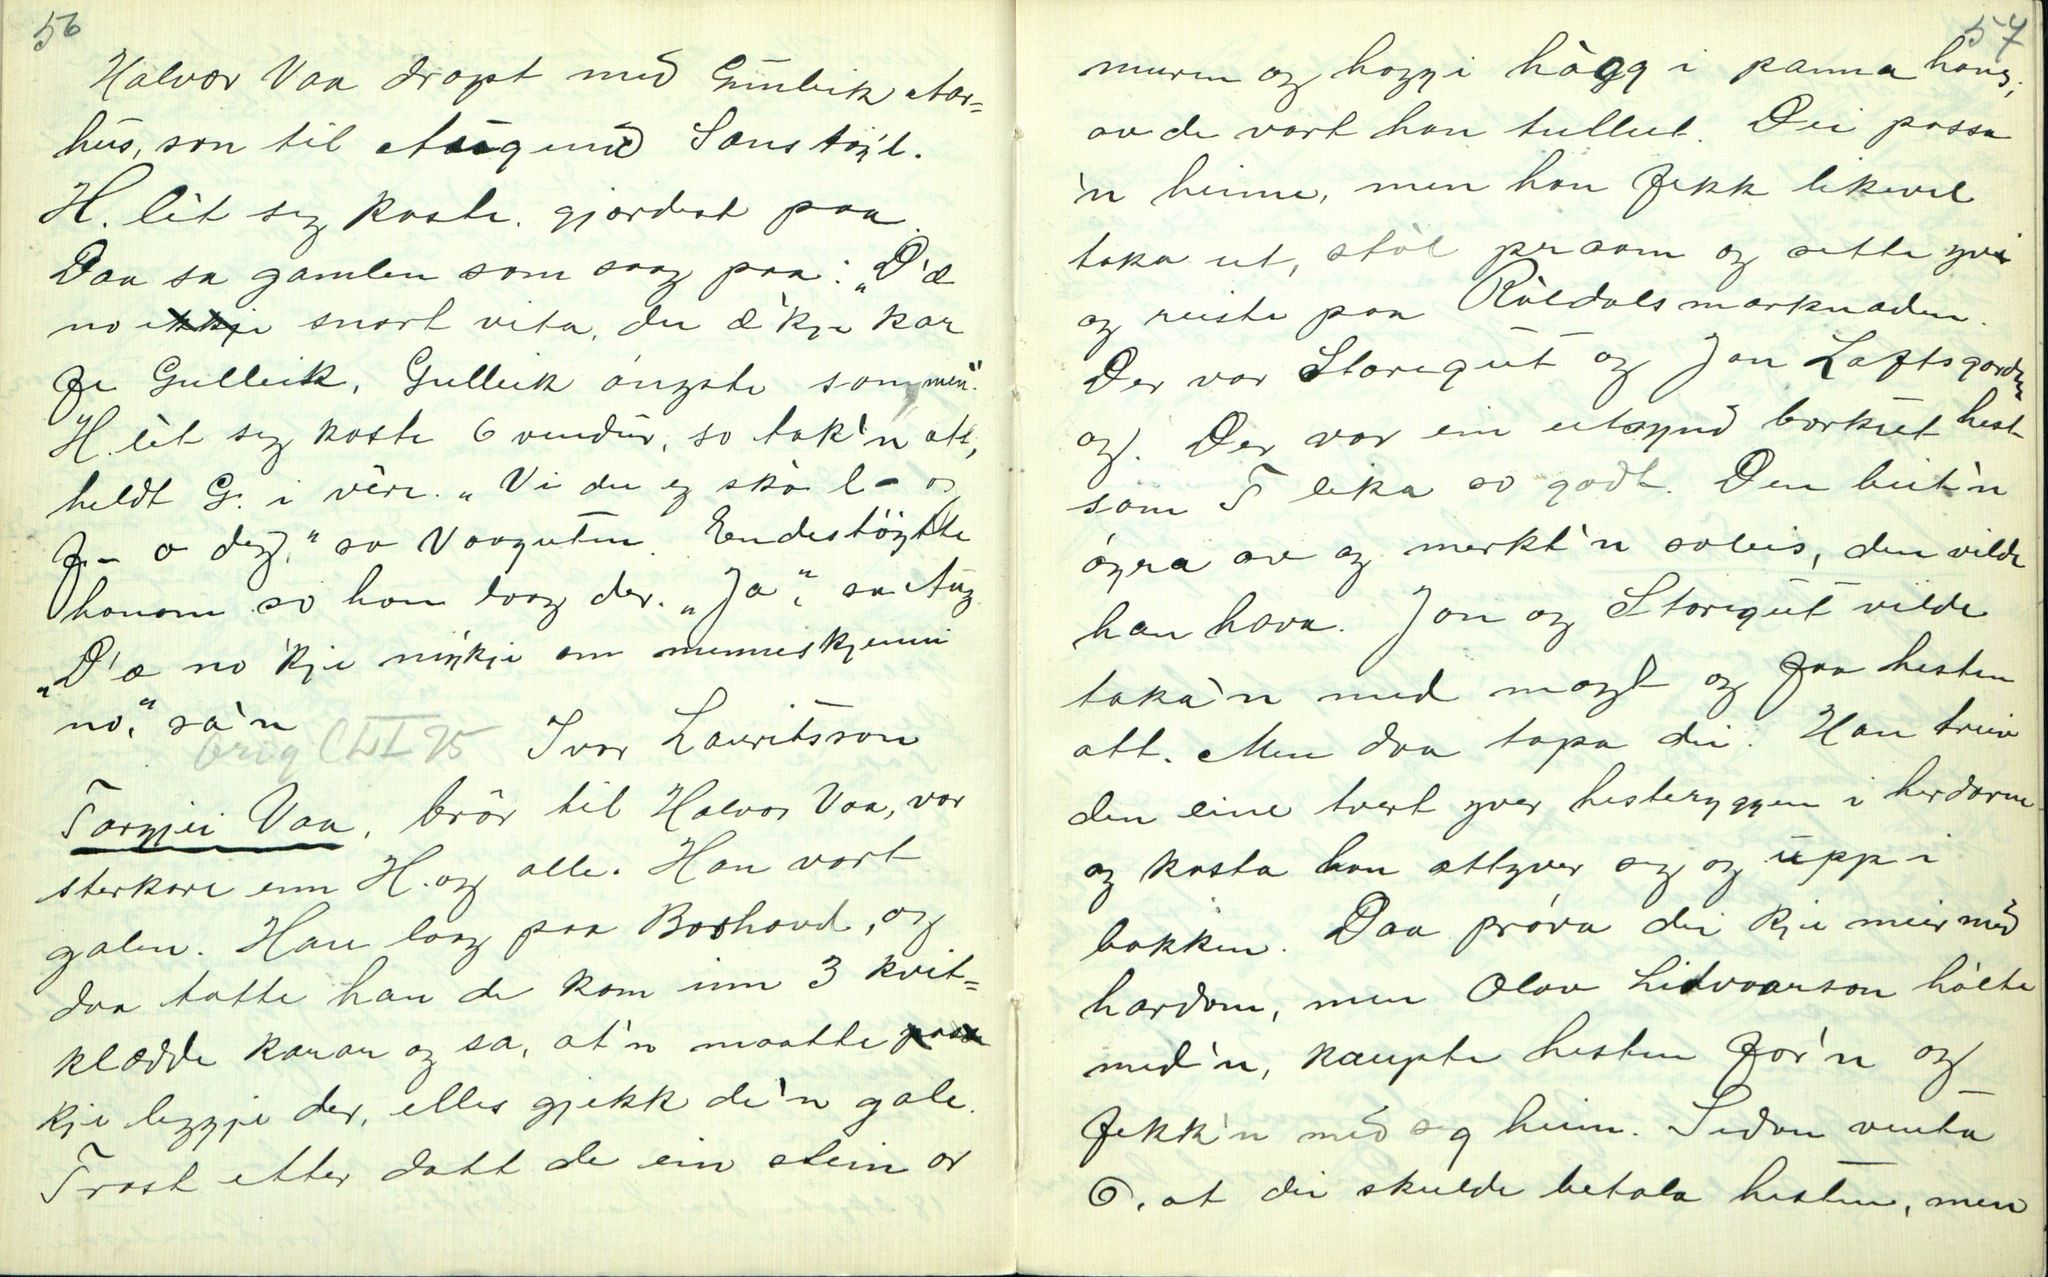 56
Halvor Vaa dropt med Gunleik Aar=
hus, son til Augund Saustøyl.
H. lèt seg kaste. gjordest paa.
Daa sa gamlen som saag paa: "D'æ
no snart vita, du æ'kje kar
fe Gulleik, Gulleik ongste som mèn".
H. lèt seg kaste 6 vendur, so tok'n att,
heldt G. i vère. "Vi du eg ska l- og
f- o deg," sa Vaaguten. Endestøytte
honom so han laag der. "Ja", sa Aug.
"D'æ no 'kje nýkje om menneskjenni
no," sa'n
Orig CLI 75 Ivar Lauritsson
Targjei Vaa, bror til Halvor Vaa, var
sterkare enn H. og alle. Han vart
galen. Han laag paa Boshovd, og
daa totte han de kom inn 3 kvit=
klædde karar og sa, at'n maatte
kje leggje der, elles gjekk de'n gale.
Trast etter datt de ein stein or
57
muren og hoggi hògg i panna hans;
av de vart han tullut. Dei passa
'n heime, men han fekk likevel
taka ut, stòl praam og sette yvi
og reiste paa Ròldalsmarknaden.
Der var Storegut og Jon Loftsgarden
og. Der var ein utsynd borkut hest
som T lika so godt. Den beit'n
óyra av og merkt'n soleis, den vilde
han hava. Jon og Storegut vilde
taka'n med magt og faa hesten
att. Men daa tapa dei. Han treiv
den eine tvert yver hesteryggen i herdarne
og kasta han attyver seg og upp i
bakken. Daa próva dei kje meir med
hardom, men Olav Lidvarson hólte
med'n, kaupte hesten for'n og
fekk'n med seg heim. Sidan venta
O. at dei skulde betala hesten, men